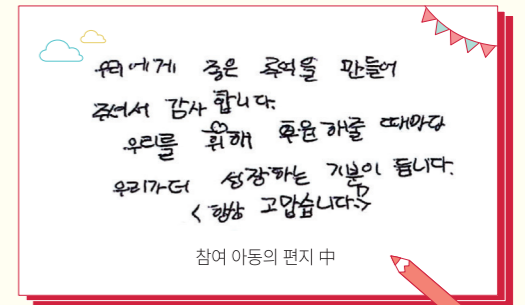 우리에게 좋은 추억을 만들어
주셔서 감사 합니다.
우리를 위해 후원 해줄 때마다
우리가 더 성장하는 기분이 듭니다.
<항상 고맙습니다>
참여 아동의 편지 中